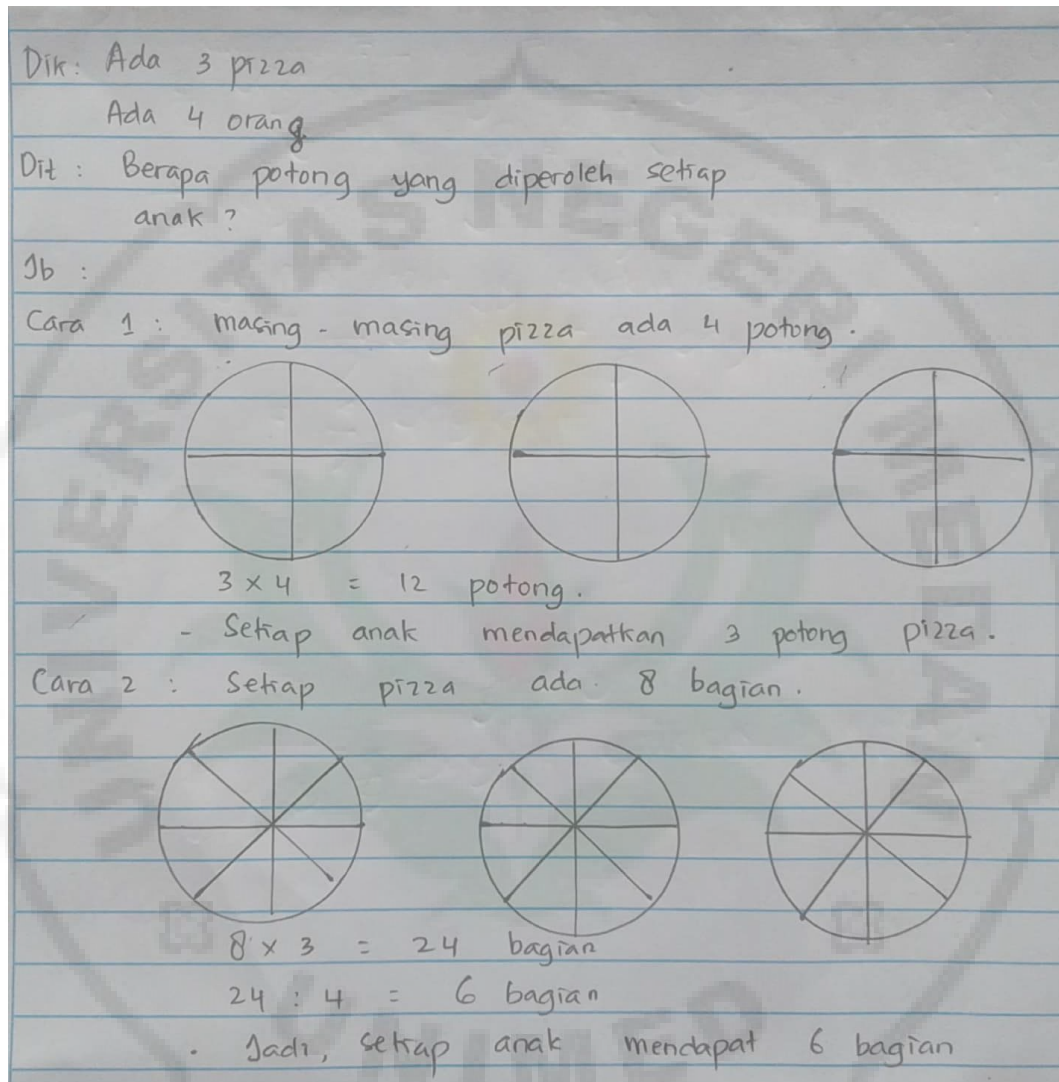 Dik: Ada 3 pizza
Ada 4 orang
Dit : Berapa potong yang diperoleh setiap
anak ?
Jb :
Cara 1 : masing - masing pizza ada 4 potong.
3 x 4 = 12 potong.
- Setiap anak mendapatkan 3 potong pizza.
Cara 2 : Setiap pizza ada 8 bagian.
8 x 3 = 24 bagian
24 : 4 = 6 bagian
. Jadi, setiap anak mendapat 6 bagian
UNIVERSITAS NEGERI MEDAN
UNIMED